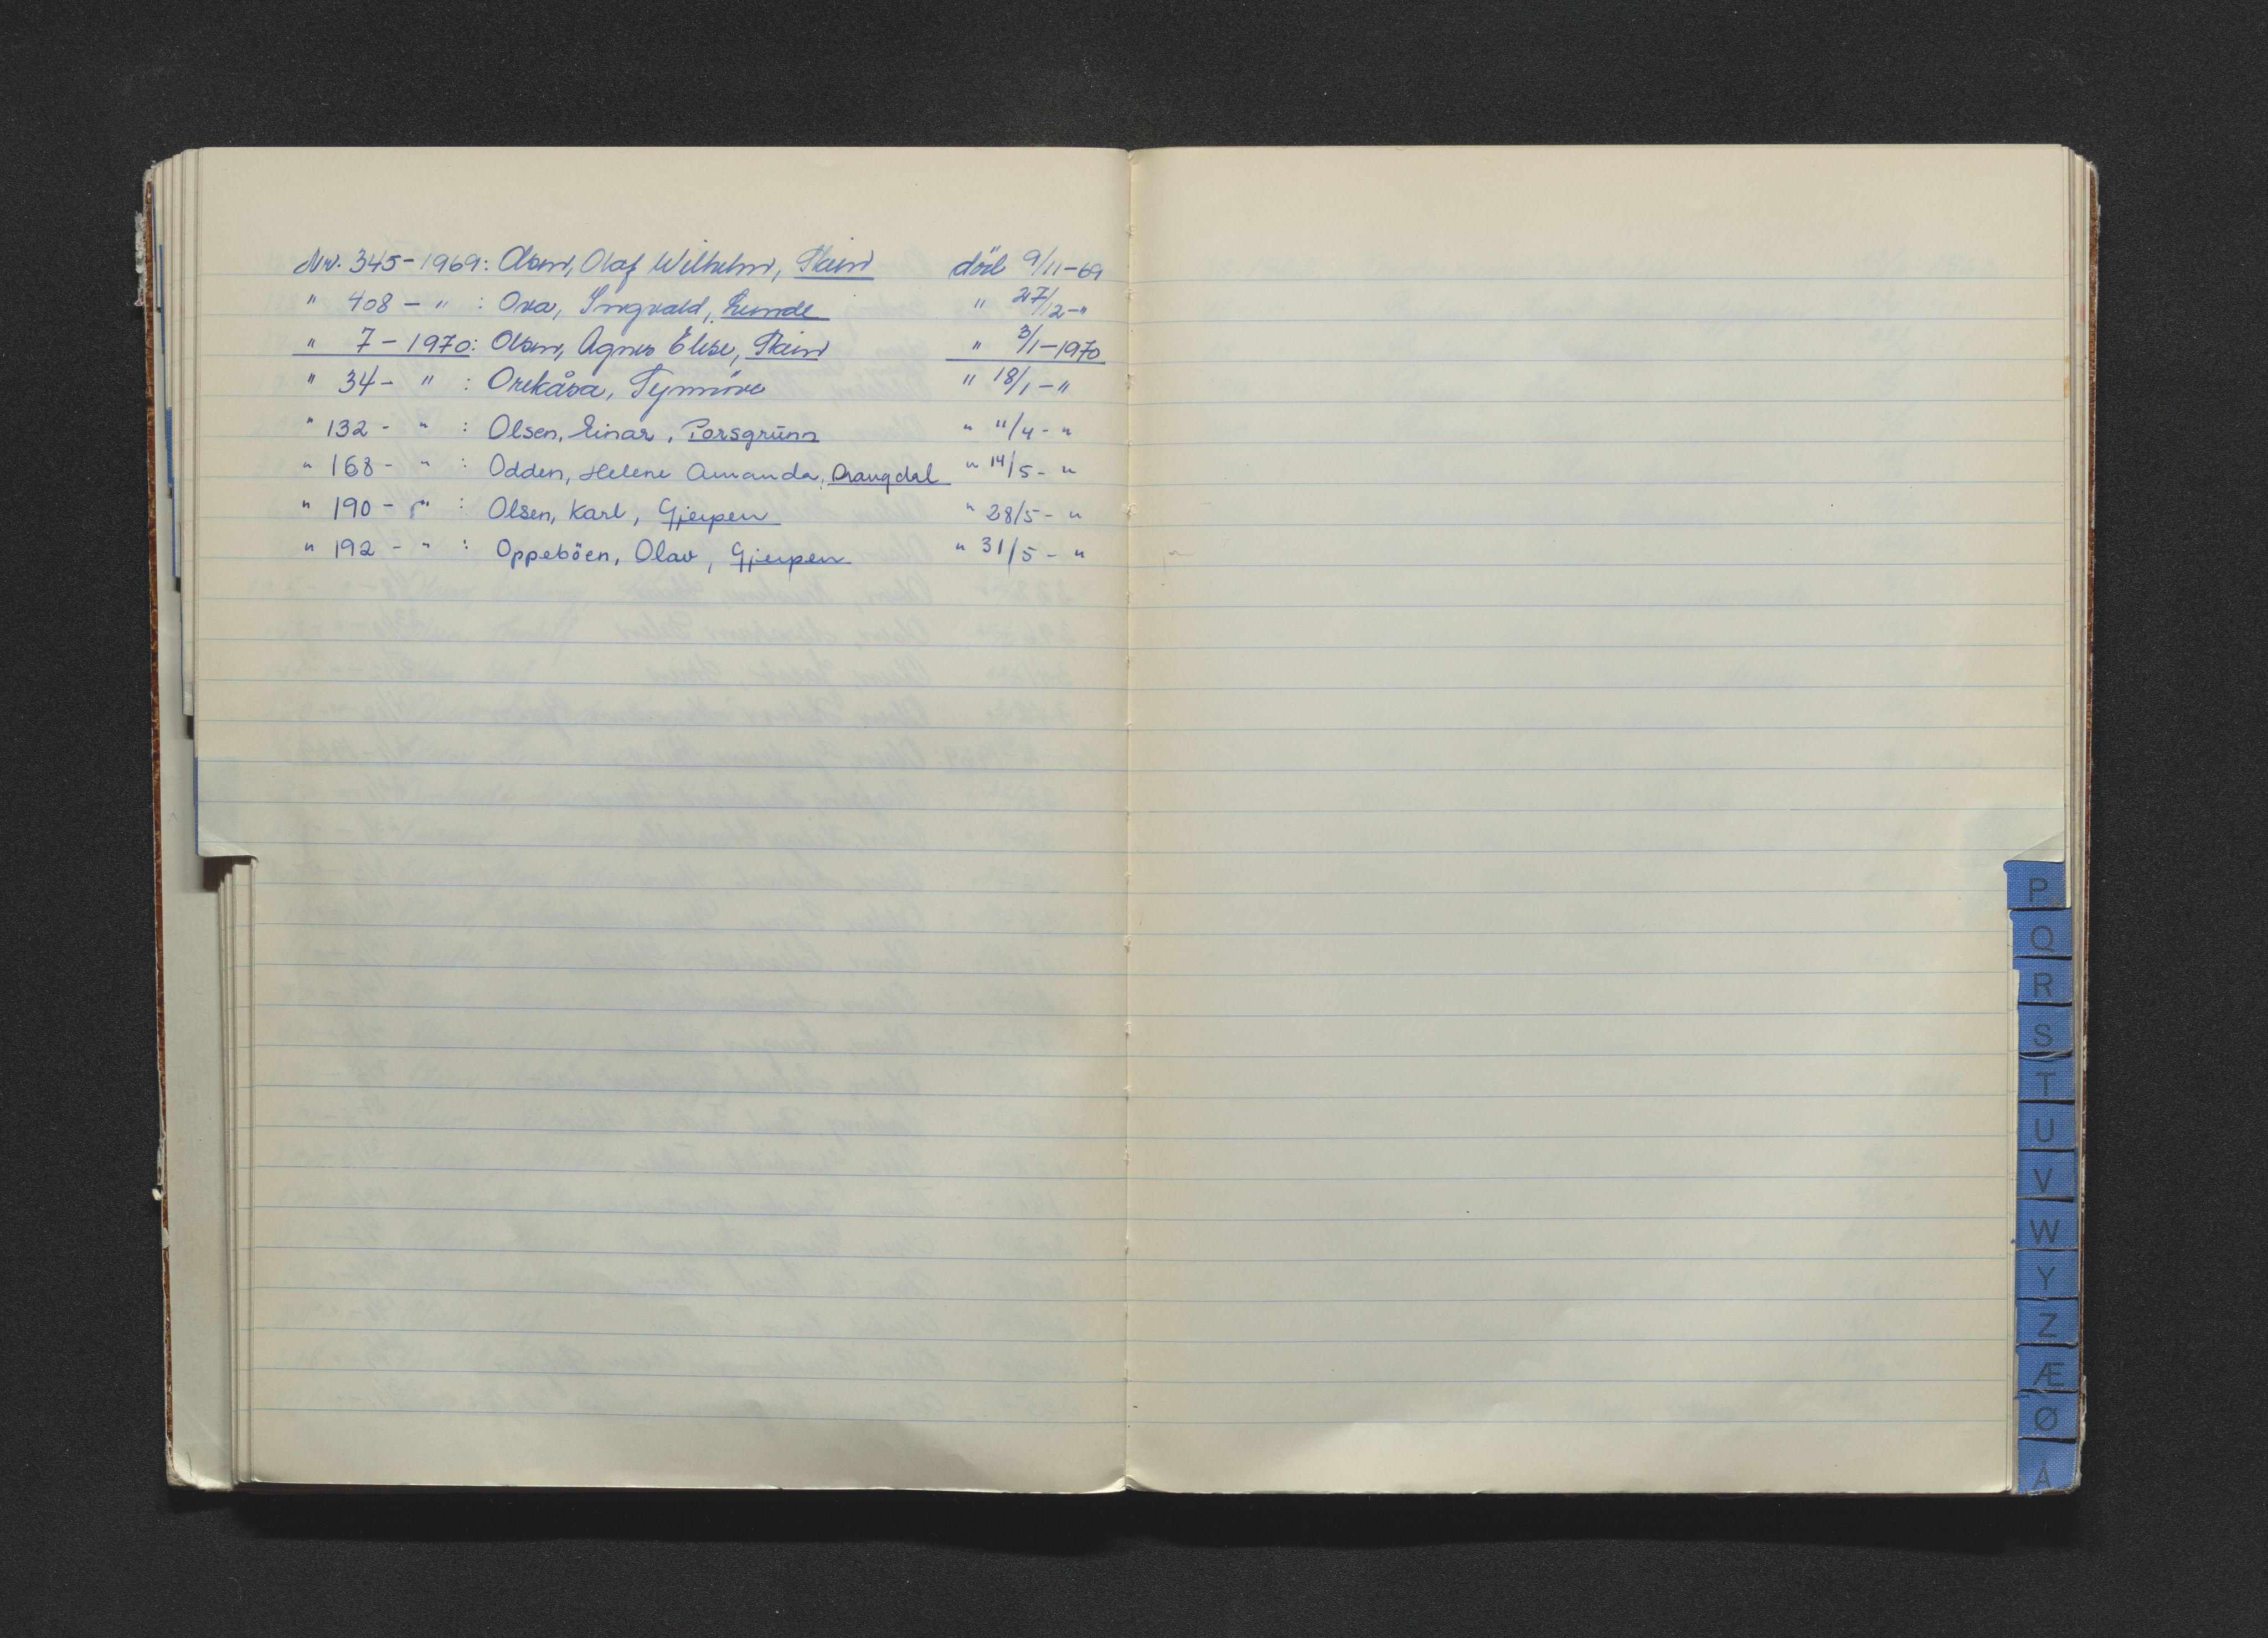 Nr. 345 - 1969: Olsen, Olaf Wilhelm, Skien död 9/11-69
" 408 - " : Ova, Ingvald, Lunde " 27/12-"
" 7 - 1970: Olsen, Agnes Elise, Skien " 3/1-1970
" 34 - " : Orekåsa, " 18/1-"
" 132 - " : Olsen, Einar, Porsgrunn " "/4 - "
" 168 - " : Odden, Helene Amanda, Drangdal " 14/5 - "
" 190 - " : Olsen, Karl, Gjerpen " 28/5 - "
" 192 - " : Oppeböen, Olav, Gjerpen " 31/5 - "
P
Q
R
S
T
U
V
W
Y
Z
Æ
Ø
Å